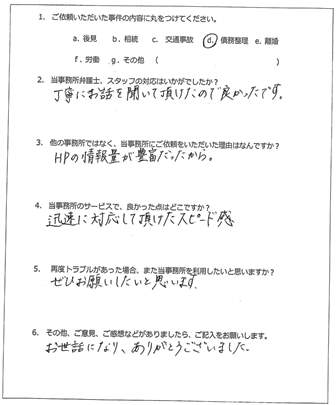 1. ご依頼いただいた事件の内容に丸をつけてください。
a. 後見 b. 相続 c. 交通事故 d. 債務整理 e. 離婚
f. 労働 g. その他 ( )
2. 当事務所弁護士、スタッフの対応はいかがでしたか?
丁寧にお話を聞いて頂けたので良かったです。
3. 他の事務所ではなく、当事務所にご依頼をいただいた理由はなんですか?
HPの情報量が豊富だったから。
4. 当事務所のサービスで、良かった点はどこですか?
迅速に対応して頂けたスピード感
5. 再度トラブルがあった場合、また当事務所を利用したいと思いますか?
ぜひお願いしたいと思います。
6. その他、ご意見、ご感想などがありましたら、ご記入をお願いします。
お世話になり、ありがとうございました。